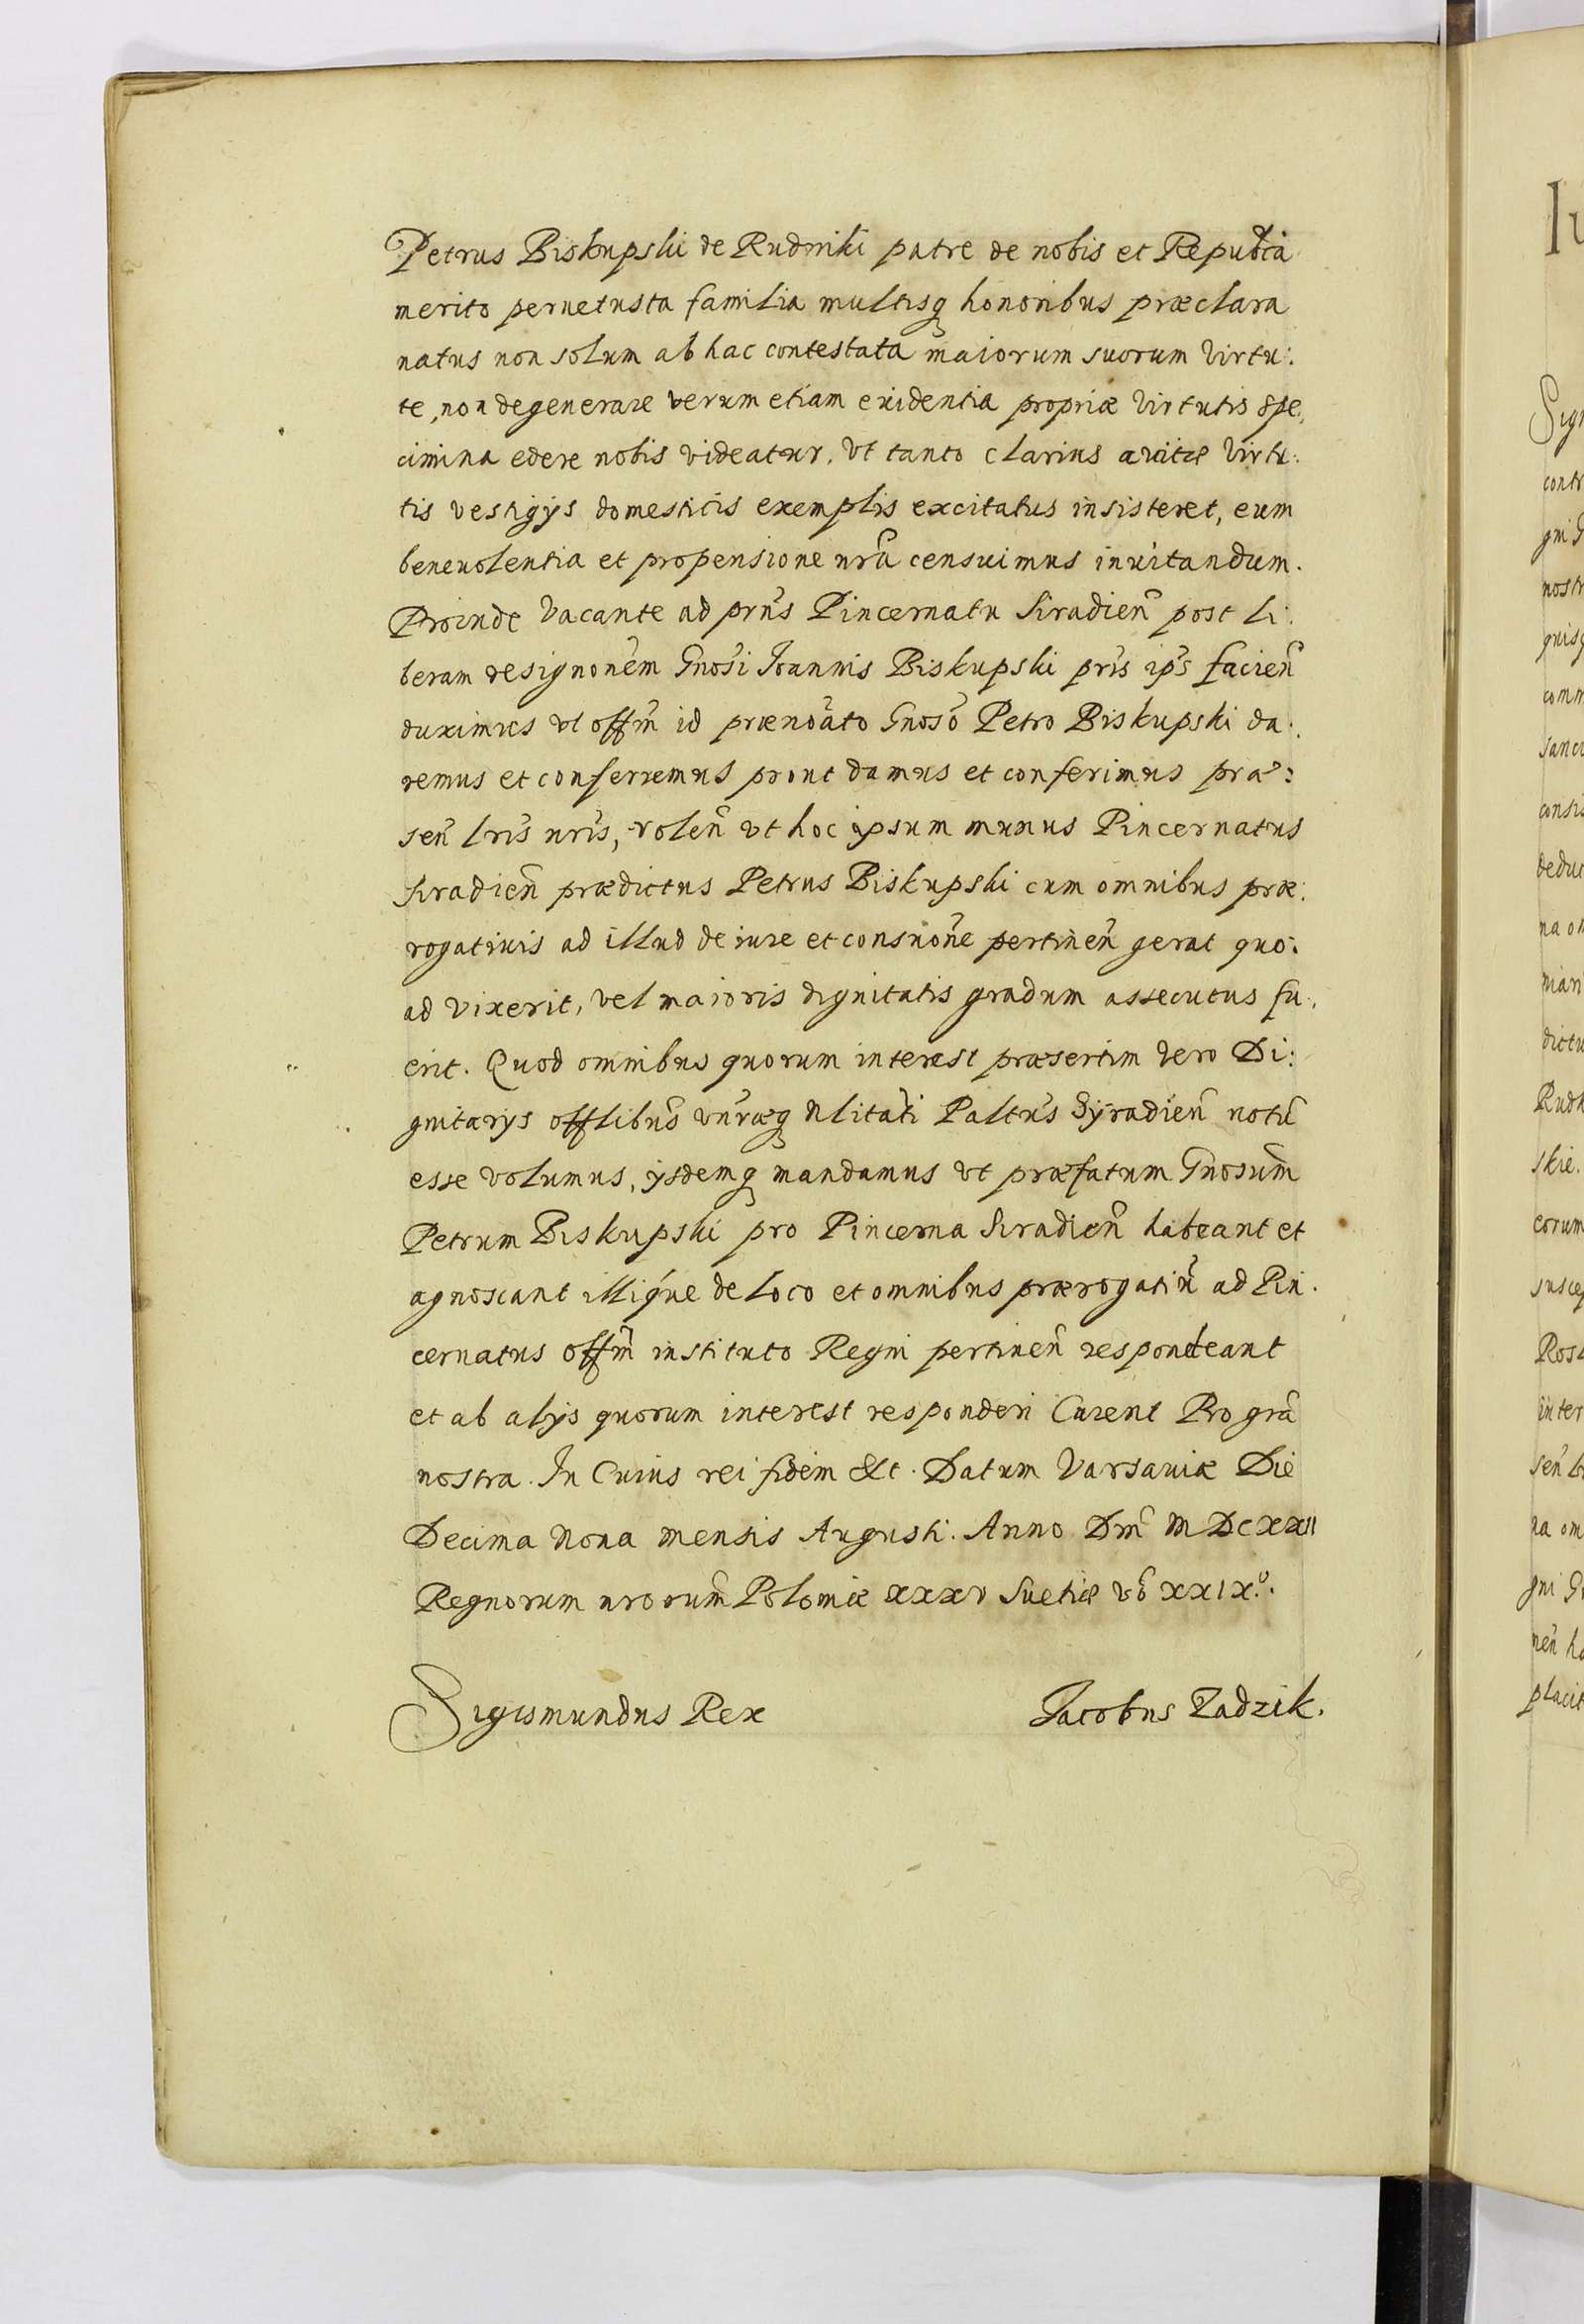 Petrus Biskupski de Rudniki patre de nobis et Repub̃ca
merito peruetusta familia multisq honoribus præclara
natus non solum ab hac contestata maiorum suorum virtu:
te, non degenerare verum etiam euidentia propriæ virtutis spe,
cimina edere nobis videatur. Vt tanto clarius auitæ virtu:
tis vestigijs domesticis exemplis excitatus insisteret, eum
beneuolentia et propensione nr̃a censuimus inuitandum.
Proinde vacante ad prn̄s Pincernatu Siradien̄ post li:
beram resignonem̄ Gnosi Joannis Biskupski pr̄is ip̄s facien̄
duximus vt offm̄ id prænoāto Gnoso Petro Biskupski da:
remus et conferremus prout damus et conferimus præ:
sen̄ lr̄is nr̄is, volen̄ vt hoc ipsum munus Pincernatus
Siradien̄ prædictus Petrus Biskupski cum omnibus præ:
rogatiuis ad illud de iure et consnōne pertinen̄ gerat quo:
ad vixerit, vel maioris dignitatis gradum assecutus fu:
erit. Quod omnibus quorum interest præsertim vero Di:
gnitarys offlibus̄ vn̄ræq Nlitati Paltus̄ Syradien̄ notū
esse volumus, ijsdemq mandamus vt præfatum Gnosum̄
Petrum Biskupski pro Pincerna Siradien̄ habeant et
agnoscant illique de loco et omnibus prærogatiū ad Pin:
cernatus offm̄ instituto Regni pertinen̄ respondeant
et ab alijs quorum interest responderi curent Pro grā
nostra. In Cuius rei fidem &c. Datum Varsauiæ Die
Decima Nona mensis Augusti. Anno Dm̄ MDCXXII
Regnorum nrorum̄ Poloniæ XXXV Suetiæ vō XXIX.º.
Sigismundus Rex
Jacobus Zadzik.